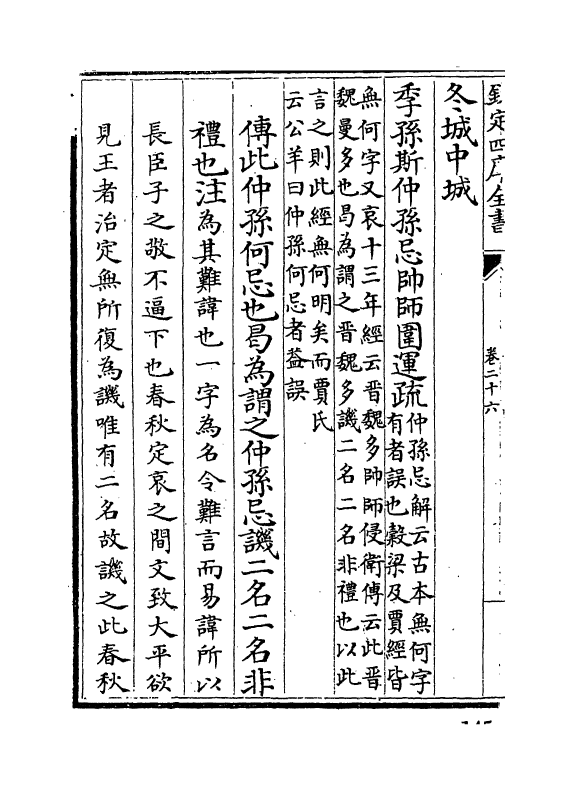 欽定四庫全書
卷二十六
冬城中城
季孫斯仲孫忌帥師圍運疏仲孫忌解云古本無何字
有者誤也穀梁及賈經皆
無何字又哀十三年經云晋魏多帥師侵衛傳云此晋
魏曼多也曷為謂之晋魏多譏二名二名非禮也以此
言之則此經無何明矣而賈氏
云公羊曰仲孫何忌者葢誤
傳此仲孫何忌也曷為謂之仲孫忌譏二名二名非
禮也注為其難諱也一字為名令難言而易諱所以
長臣子之敬不逼下也春秋定哀之間文致大平欲
見王者治定無所復為譏唯有二名故譏之此春秋